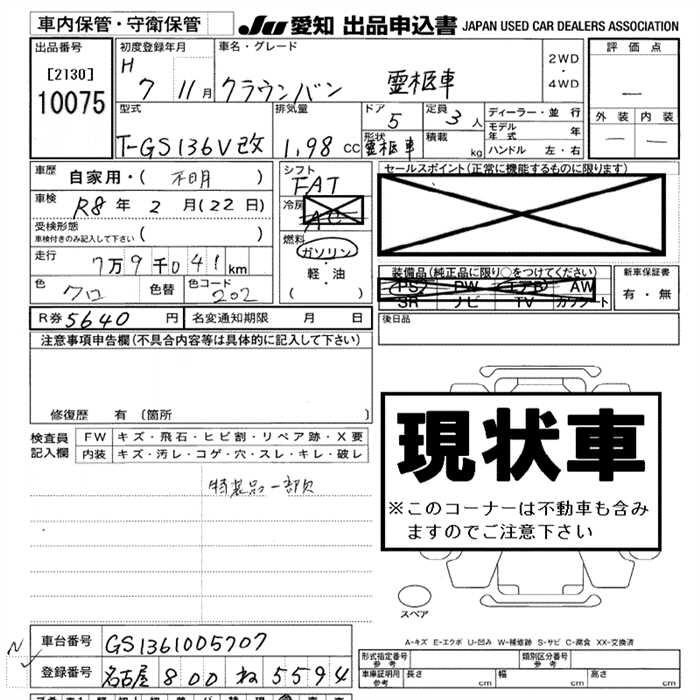 車内保管・守衛保管
JU 愛知 出品申込書 JAPAN USED CAR DEALERS ASSOCIATION
出品番号
[2130]
10075
初度登録年月
H 7 11月
車名・グレード
クラウンバン 霊柩車
2WD
・
4WD
評価点
—
外装 内装
— —
型式
T-GS136V改
排気量
1.98 CC
ドア
5
形状
霊柩車
定員
3人
積載
kg
ディーラー・並行
モデル年式 年
ハンドル 左・右
車歴
自家用・( 不明 )
車検
R8年 2月(22日)
受検形態
車検付きのみ記入して下さい ( )
走行
7万9千041km
色
クロ
色替
色コード
202
シフト
FAT
冷房
AC
燃料
ガソリン
・
軽・油
( )
セールスポイント(正常に機能するものに限ります)
装備品(純正品に限り○をつけてください)
PS PW エアB AW
SR ナビ TV カワシート
新車保証書
有・無
R券 5640 円
名変通知期限 月 日
後日品
注意事項申告欄(不具合内容等は具体的に記入して下さい)
修復歴 有(箇所 )
検査員記入欄
FW キズ・飛石・ヒビ割・リペア跡・X要
内装 キズ・汚レ・コゲ・穴・スレ・キレ・破レ
特装品一部欠
現状車
※このコーナーは不動車も含み
ますのでご注意下さい
スペア
A-キズ E-エクボ U-凹み W-補修跡 S-サビ C-腐食 XX-交換済
車台番号
GS1361005707
登録番号
名古屋 800 ね 5594
形式指定番号
参考
類別区分番号
参考
車庫証明用
参考
長さ 幅 高さ
cm cm cm